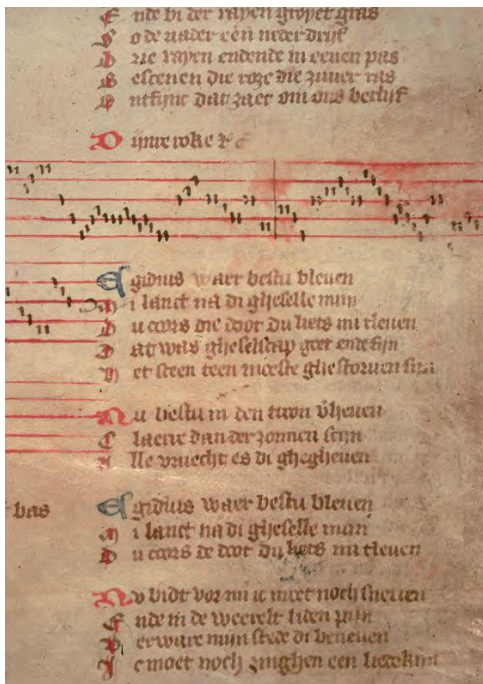 Ende bi der rayen groyet gras
So de nader een neder drijf
Drie rayen endende in eenen pas
Bescenen die roze die zuuer was
Ontfinc dat zaet om ons beclijf
Dijnre roke &c
Egidius waer bestu bleuen
Mi lanct na di gheselle mijn
Du coors die doot du liets mi tleuen
Dat was gheselscap goet ende fijn
Het sceen teen moeste ghestoruen sijn
Nu bestu in den troon v'heuen
Claerre dan der zonnen scijn
Alle vruecht es di ghegheuen
bas
Egidius waer bestu bleuen
Mi lanct na di gheselle mijn
Du coors de doot du liets mi tleuen
Nu bidt vor mi ic moet noch sneuen
Ende in de weerelt liden pijn
Verware mijn stede di beneuen
Ic moet noch zinghen een liedekijn